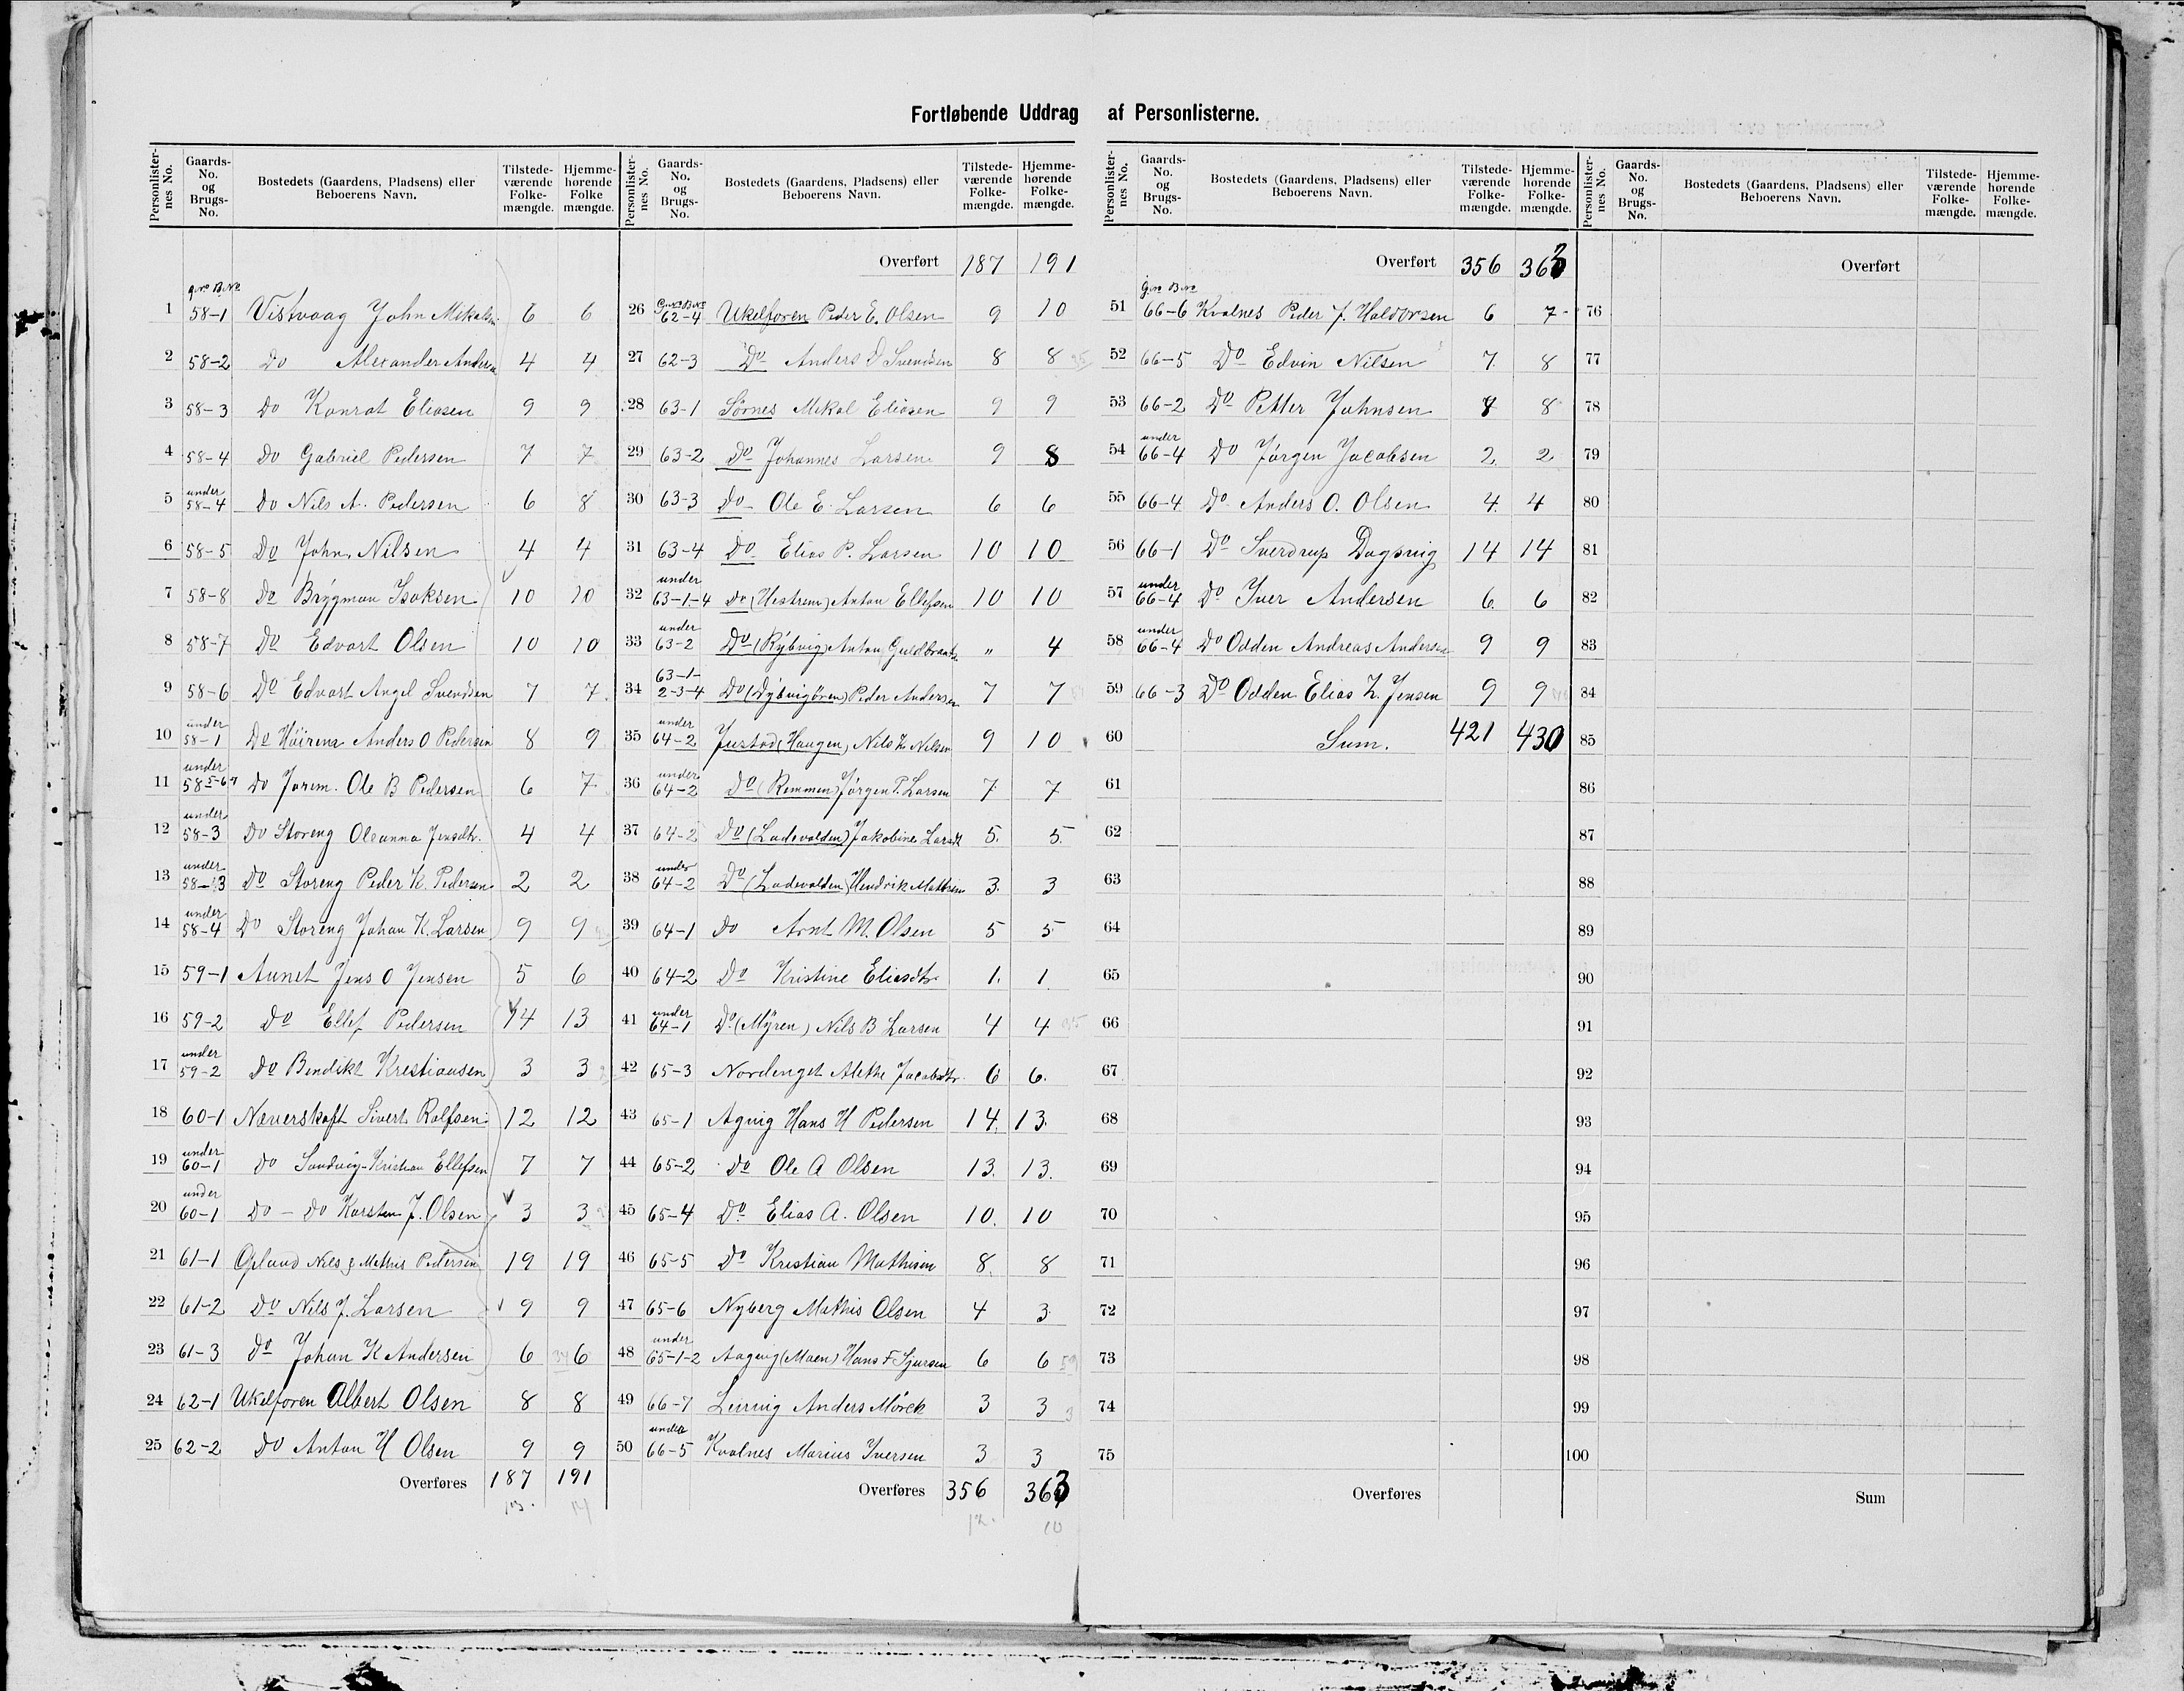 Fortløbende Uddrag af Personlisterne.
Personlisternes No. Gaards-No. og Brugs-No. Bostedets (Gaardens, Pladsens) eller Beboerens Navn. Tilstedeværende Folkemængde. Hjemmehørende Folkemængde.
1 58-1 Vistvaag John Mikalsn 6 6
2 58-2 Do Alexander Anders 4 4
3 58-3 Do Konrat Eliasen 9 9
4 58-4 Do Gabriel Pedersen 7 7
5 under 58-4 Do Nils A. Pedersen 6 8
6 58-5 Do John Nilsen 4 4
7 58-8 Do Brygman Isaksen 10 10
8 58-7 Do Edvart Olsen 10 10
9 58-6 Do Edvart Angel Svendsen 7 7
10 under 58-1 Do Höirena Anders O Pedersen 8 9
11 under 58 5-6-7 Do Jorem. Ole B Pedersen 6 7
12 under 58-3 Do Storeng Oleanna Jensdtr. 4 4
13 under 58-3 Do Storeng Peder K. Pedersen 2 2
14 under 58-4 Do Storeng Johan K. Larsen 9 9
15 59-1 Aunet Jens O Jensen 5 6
16 59-2 Do Ellef Pedersen 14 13
17 under 59-2 Do Bendikt Kristiansen 3 3
18 60-1 Næverskaft Sivert Rolfsen 12 12
19 under 60-1 Do Sandvig Kristian Ellefsen 7 7
20 under 60-1 Do - Do Karsten J. Olsen 3 3
21 61-1 Opland Nils & Mathis Pedersen 19 19
22 61-2 Do Nils J. Larsen 9 9
23 61-3 Do Johan K Andersen 6 6
24 62-1 Ukelforen Albert Olsen 8 8
25 62-2 Do Anton H Olsen 9 9
Overføres 187 191
Personlisternes No. Gaards-No. og Brugs-No. Bostedets (Gaardens, Pladsens) eller Beboerens Navn. Tilstedeværende Folkemængde. Hjemmehørende Folkemængde.
Overført 187 191
26 62-4 Ukelforen Peder E. Olsen 9 10
27 62-3 Do Anders D Svendsen 8 8
28 63-1 Sörnes Mikal Eliasen 9 9
29 63-2 Do Johannes Larsen 9 8
30 63-3 Do Ole E. Larsen 6 6
31 63-4 Do Elias P. Larsen 10 10
32 under 63-1-4 Do (Hestrem) Anton Ellefsen 10 10
33 under 63-2 Do (Rybvig) Anton Guldbrants. " 4
34 63-1-2-3-4 Do (Dybvigören) Peder Andersen 7 7
35 under 64-2 Justad (Haugen) Nils K Nilsen 9 10
36 under 64-2 Do (Remmen) Jørgen P. Larsen 7 7
37 64-2 Do (Ladevolden) Jakobine Larsdt 5 5
38 under 64-2 Do (Ladevolden) Hendrik Mathisen 3 3
39 64-1 Do Arnt M. Olsen 5 5
40 64-2 Do Kristine Eliasdtr 1 1
41 under 64-1 Do (Myren) Nils B Larsen 4 4
42 65-3 Nordenget Alethe Jacobsdtr. 6 6
43 65-1 Agvig Hans H Pedersen 14 13
44 65-2 Do Ole A Olsen 13 13
45 65-4 Do Elias A. Olsen 10 10
46 65-5 Do Kristian Mathisen 8 8
47 65-6 Nyberg Mathis Olsen 4 3
48 under 65-1-2 Aagvig (Moen) Hans F Sjursen 6 6
49 66-7 Leirvig Anders Mörch 3 3
50 under 66-5 Kvalnes Marius Iversen 3 3
Overføres 356 363
Personlisternes No. Gaards-No. og Brugs-No. Bostedets (Gaardens, Pladsens) eller Beboerens Navn. Tilstedeværende Folkemængde. Hjemmehørende Folkemængde.
Overført 356 363
51 66-6 Kvalnes Peder J. Haldorsen 6 7
52 66-5 Do Edvin Nilsen 7 8
53 66-2 Do Petter Johnsen 8 8
54 under 66-4 Do Jörgen Jacobsen 2 2
55 66-4 Do Anders O. Olsen 4 4
56 66-1 Do Sverdrup Dagsvig 14 14
57 under 66-4 Do Iver Andersen 6 6
58 under 66-4 Do Odden Andreas Andersen 9 9
59 66-3 Do Odden Elias K. Jensen 9 9
60 Sum. 421 430
61
62
63
64
65
66
67
68
69
70
71
72
73
74
75
Overføres
Personlisternes No. Gaards-No. og Brugs-No. Bostedets (Gaardens, Pladsens) eller Beboerens Navn. Tilstedeværende Folkemængde. Hjemmehørende Folkemængde.
Overført
76
77
78
79
80
81
82
83
84
85
86
87
88
89
90
91
92
93
94
95
96
97
98
99
100
Sum